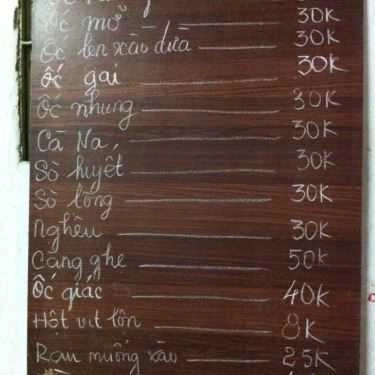 Ốc 30K
Ốc mỡ 30K
Ốc len xào dừa 30K
Ốc gai 30K
Ốc nhung 30K
Cà Na, 30K
Sò huyết 30K
Sò lông 30K
Nghêu 30K
Càng ghẹ 50K
Ốc giác 40K
Hột vịt lộn 8K
Rau muống xào 25K